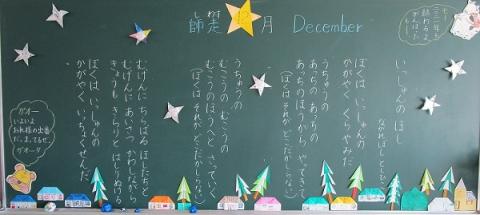 しわす
師走 12月 December
いっしゅんの ほし
ながれぼし としひこ
ぼくは いっしゅんの
かがやく くらやみだ
うちゅうの
あっちの あっちの
あっちのほうから やってきて
(ぼくは それが どこだかしらない)
うちゅうの
むこうの むこうの
むこうのほうへと さっていく
(ぼくは それが どこだかしらない)
むげんに ちらばる ほしたちと
むげんに あいさつ かわしながら
きょうも きらりと はしりぬける
ぼくは いっしゅんの
かがやく いちおくせんだ
ガオー
いよいよ